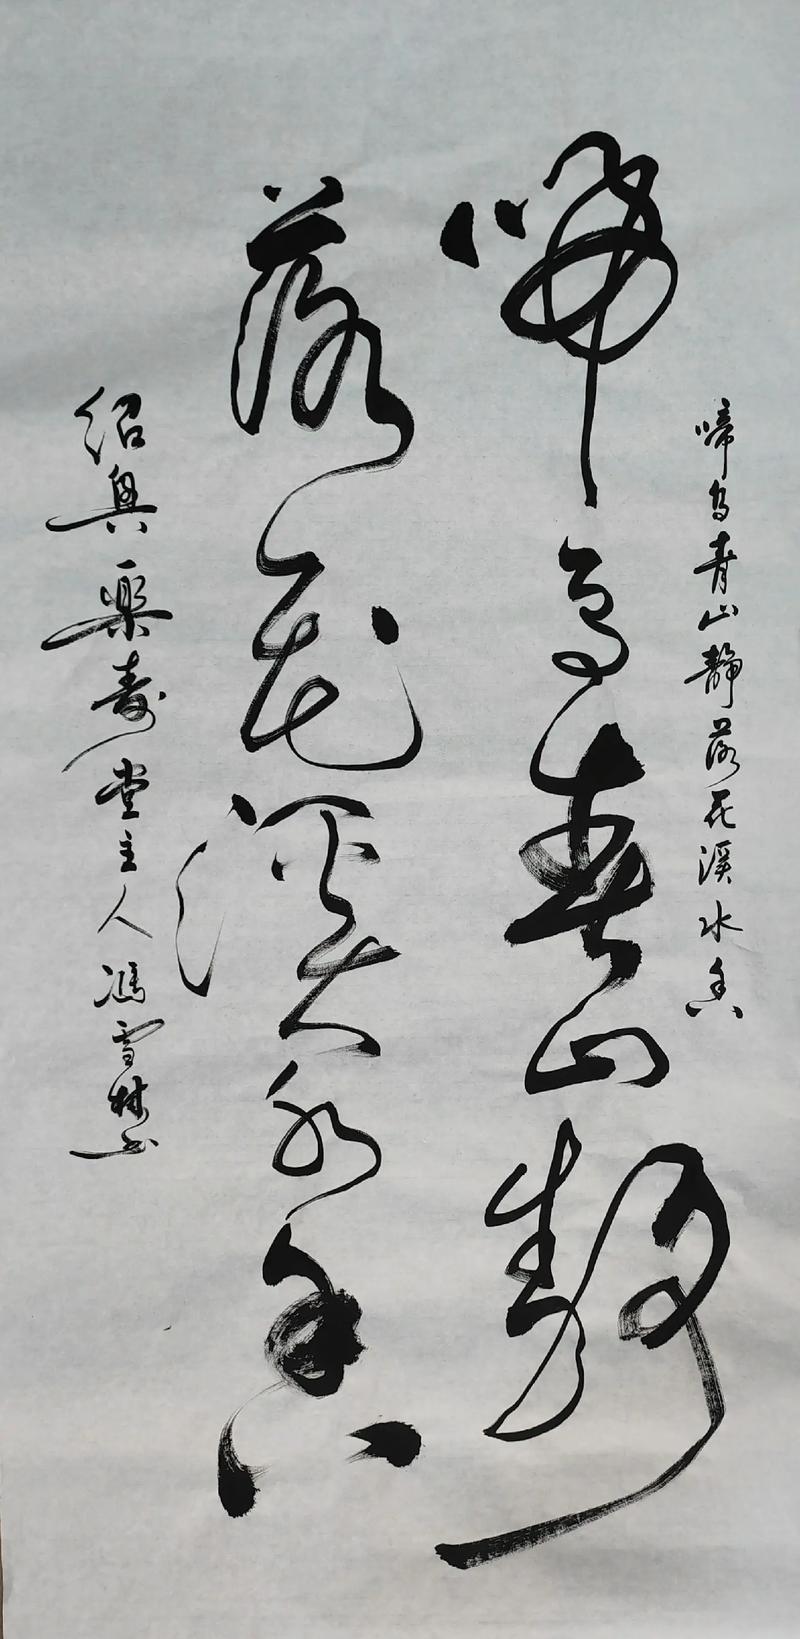 啼鸟青山静落花溪水香
啼鸟青山静
落花溪水香
绍兴乐寿堂主人冯雪林书